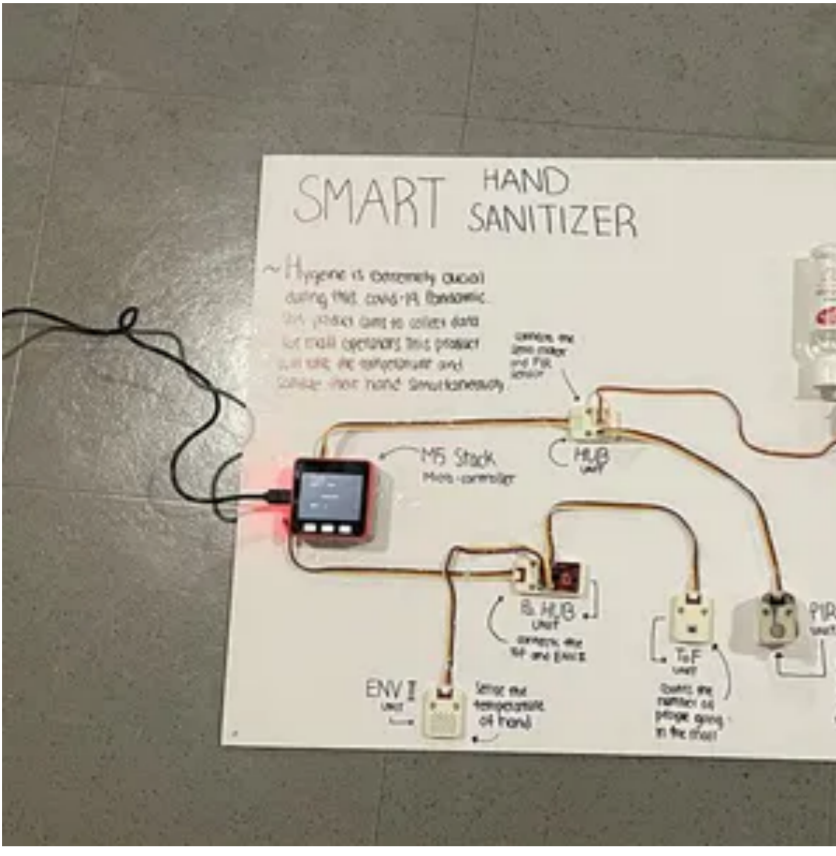 SMART HAND
SANITIZER
~ Hygeine is extremely crucial
during this covid-19 Pandemic.
this product aims to collect data
for mall operators this product
will take the temperature and
sanitize their hand simultaneously
connects the
servo motor
and PIR
sensor
HUB
UNIT
M5 Stack
Micro-controller
Pa HUB
UNIT
connects the
ToF and ENV II
PIR
UNIT
ToF
UNIT
counts the
number of
people going
in the mall
ENV II
UNIT
Sense the
temperature
of hand